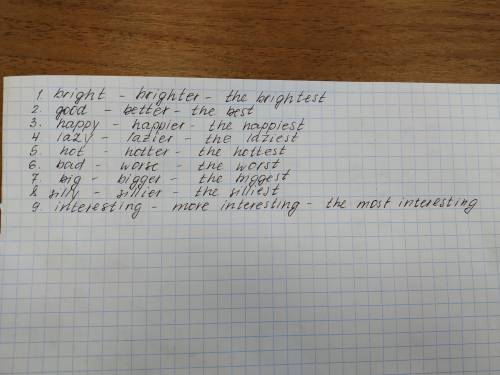 1 bright - brighter - the brightest
2. good - better - the best
3. happy - happier - the happiest
4 lazy - lazier - the laziest
5 hot - hotter - the hottest
6. bad - worse - the worst
7 big - bigger - the biggest
8 silly - sillier - the silliest
9 interesting - more interesting - the most interesting